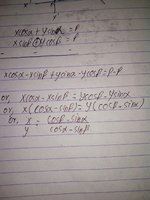 xcosα + ysinα = P
xsinβ + ycosβ = P
xcosα - xsinβ + ysinα - ycosβ = P-P
or, xcosα - xsinβ = ycosβ - ysinα
or, x(cosα - sinβ) = y(cosβ - sinα)
or, x/y = cosβ - sinα / cosα - sinβ